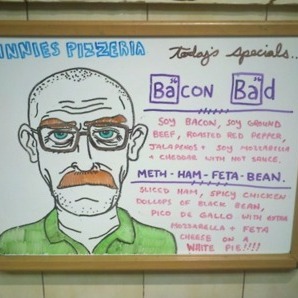 INNIES PIZZERIA
Today's specials...
56
Bacon
56
Bad
SOY BACON, SOY GROUND
BEEF, ROASTED RED PEPPER,
JALAPEÑOS + SOY MOZZARELLA
+ CHEDDAR WITH HOT SAUCE.
METH-HAM-FETA-BEAN.
SLICED HAM, SPICY CHICKEN
DOLLOPS OF BLACK BEAN,
PICO DE GALLO WITH EXTRA
MOZZARELLA + FETA
CHEESE ON A
WHITE PIE!!!!